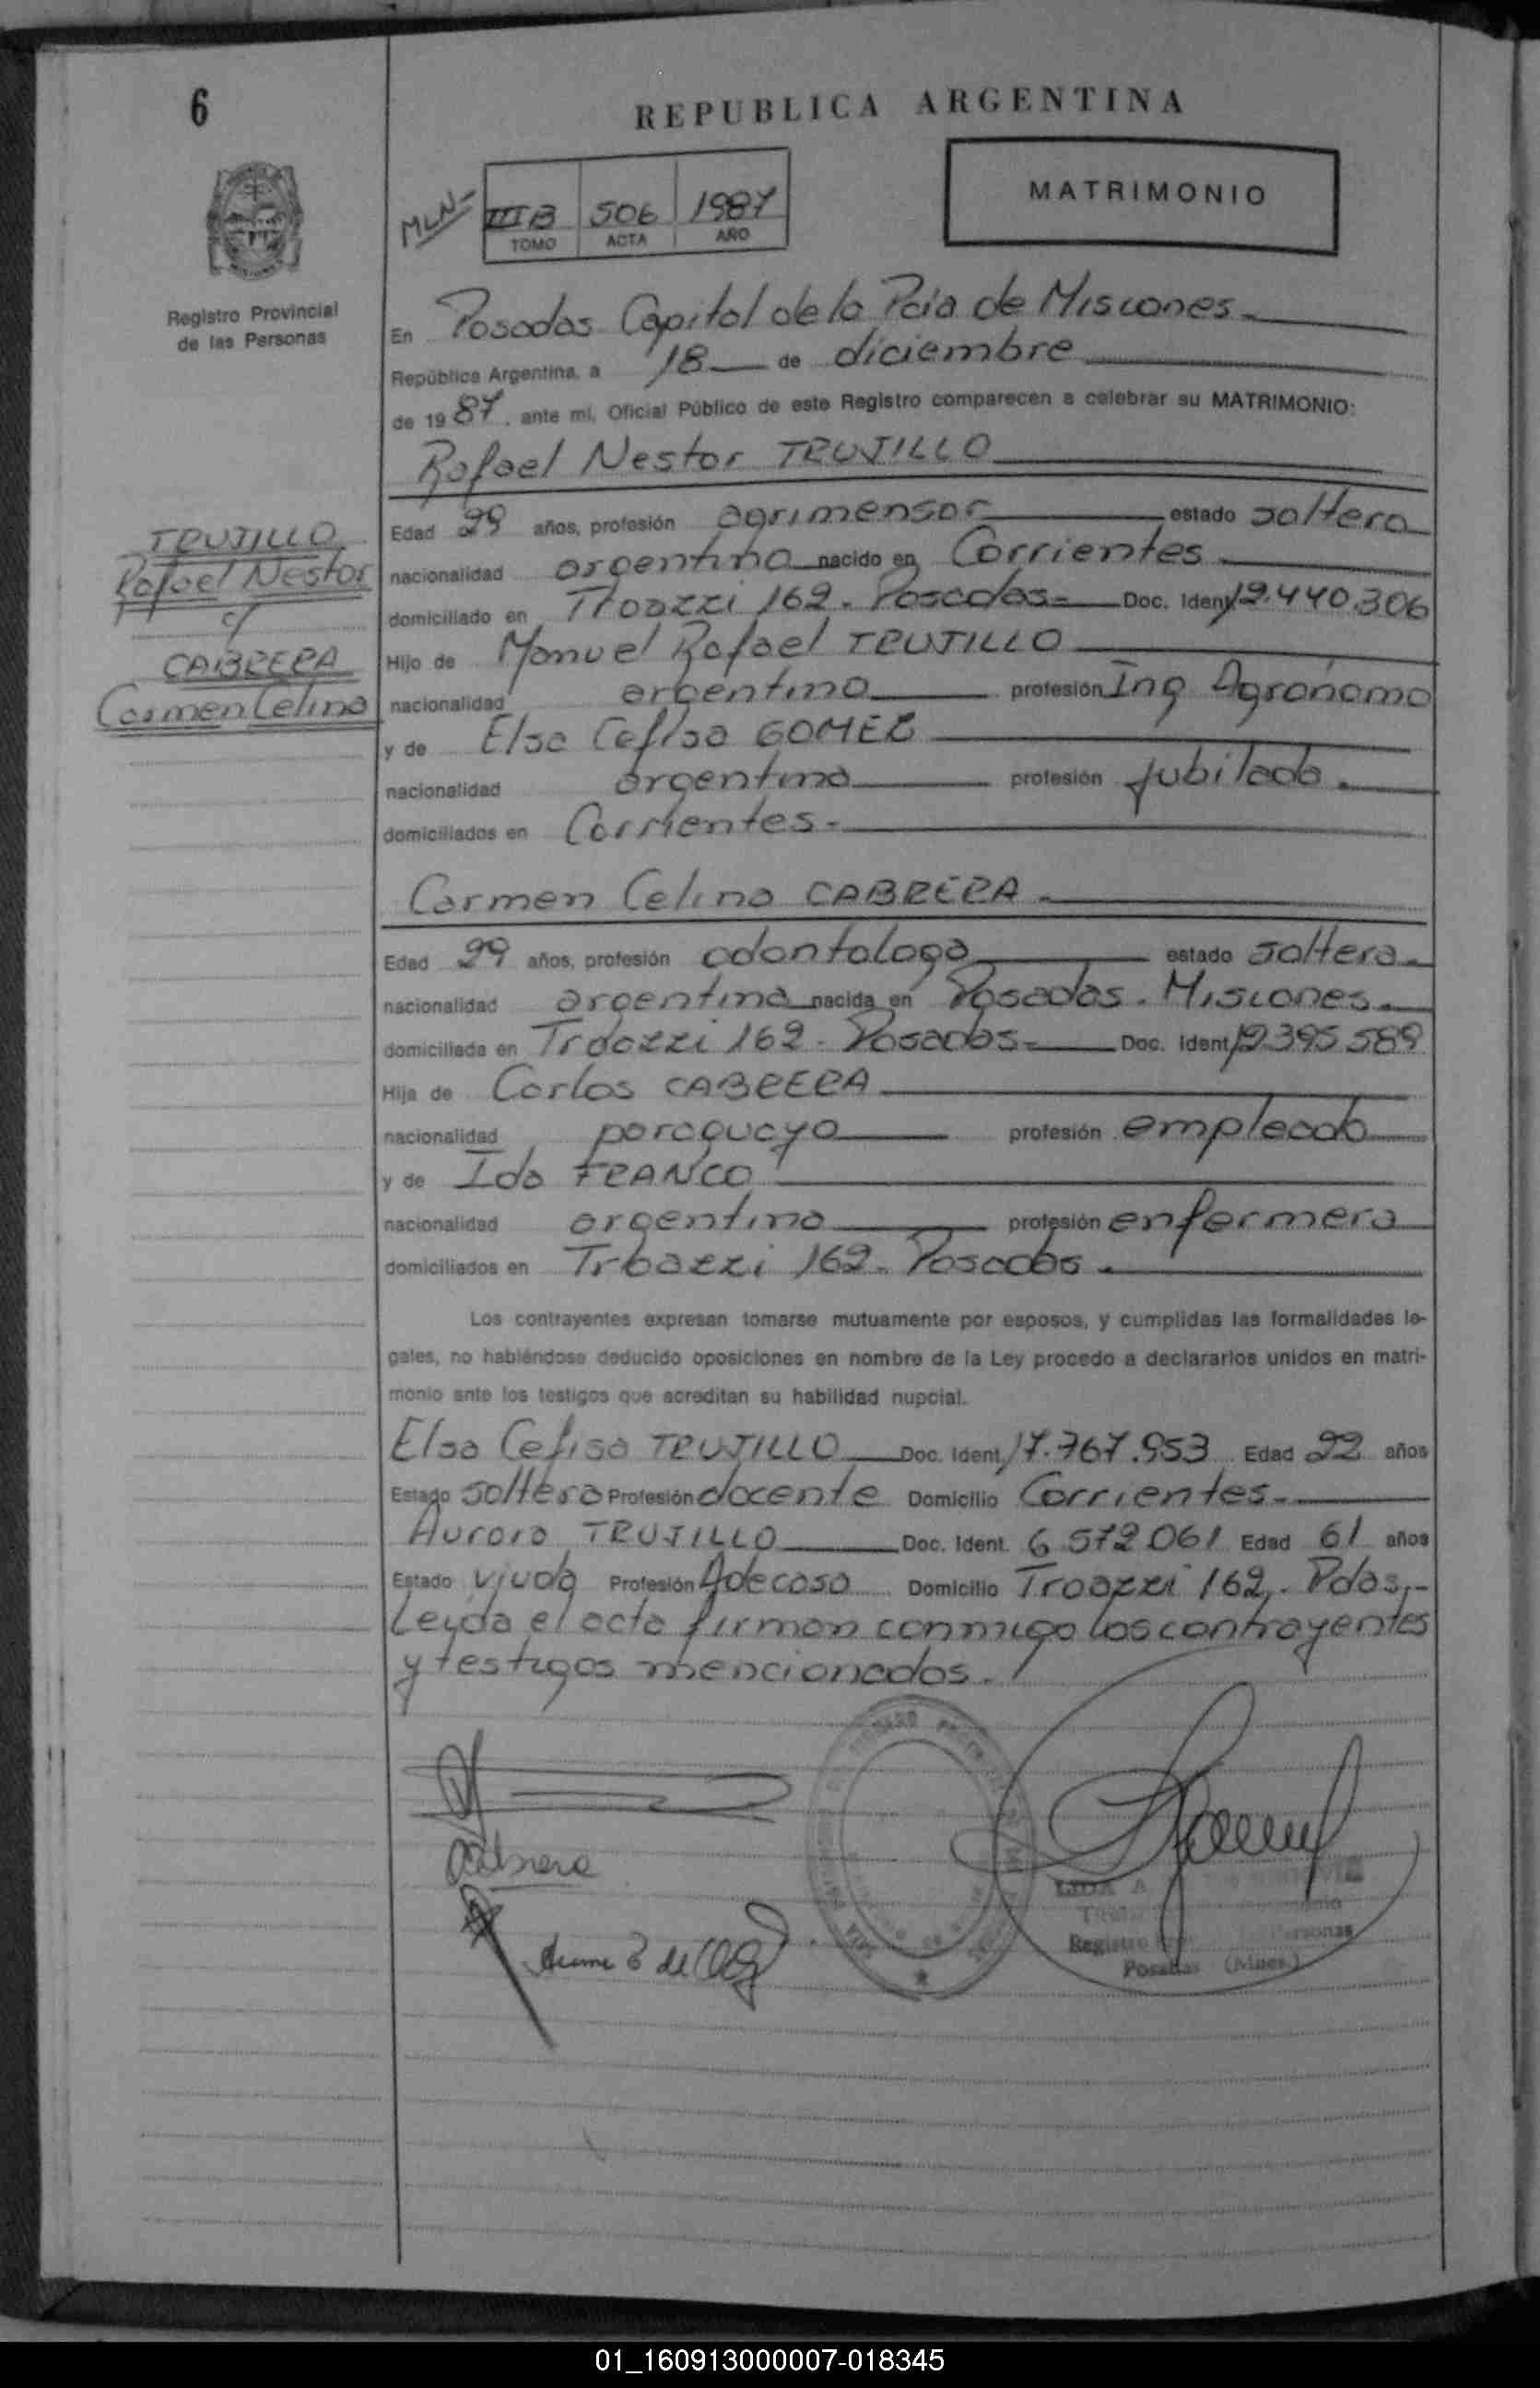 6
REPUBLICA ARGENTINA
MATRIMONIO
MLN-
III B 506 1987
TOMO ACTA AÑO
Registro Provincial
de las Personas
En Posadas Capital de la Pcia de Misiones.
República Argentina, a 18 de diciembre
de 1987, ante mí, Oficial Público de este Registro comparecen a celebrar su MATRIMONIO:
Rafael Nestor TRUJILLO
TRUJILLO
Rafael Nestor
c/
CABRERA
Carmen Celina
Edad 29 años, profesión agrimensor estado soltero
nacionalidad argentino nacido en Corrientes
domiciliado en 162. Posadas- Doc. Ident. 12.440.306
Hijo de Manuel Rafael TRUJILLO
nacionalidad argentino profesión Ing Agrónomo
y de Elsa Cefisa GOMEZ
nacionalidad argentina profesión jubilada.
domiciliados en Corrientes-
Carmen Celina CABRERA.
Edad 29 años, profesión odontologa estado soltera.
nacionalidad argentina nacida en Posadas. Misiones.
domiciliada en 162. Posadas- Doc. Ident. 12.395.589
Hija de Carlos CABRERA
nacionalidad paraguayo profesión empleado
y de Ida FRANCO
nacionalidad argentina profesión enfermera
domiciliados en 162. Posadas.
Los contrayentes expresan tomarse mutuamente por esposos, y cumplidas las formalidades le-
gales, no habiéndose deducido oposiciones en nombre de la Ley procedo a declararlos unidos en matri-
monio ante los testigos que acreditan su habilidad nupcial.
Elsa Cefisa TRUJILLO Doc. Ident. 17.767.953 Edad 22 años
Estado soltera Profesión docente Domicilio Corrientes.
Aurora TRUJILLO Doc. Ident. 6.572.061 Edad 61 años
Estado viuda Profesión A de casa Domicilio 162. Pdas.-
Leida el acta firman conmigo los contrayentes
y testigos mencionados.
Cabrera
Registro
Posadas (Mnes.)
01_160913000007-018345